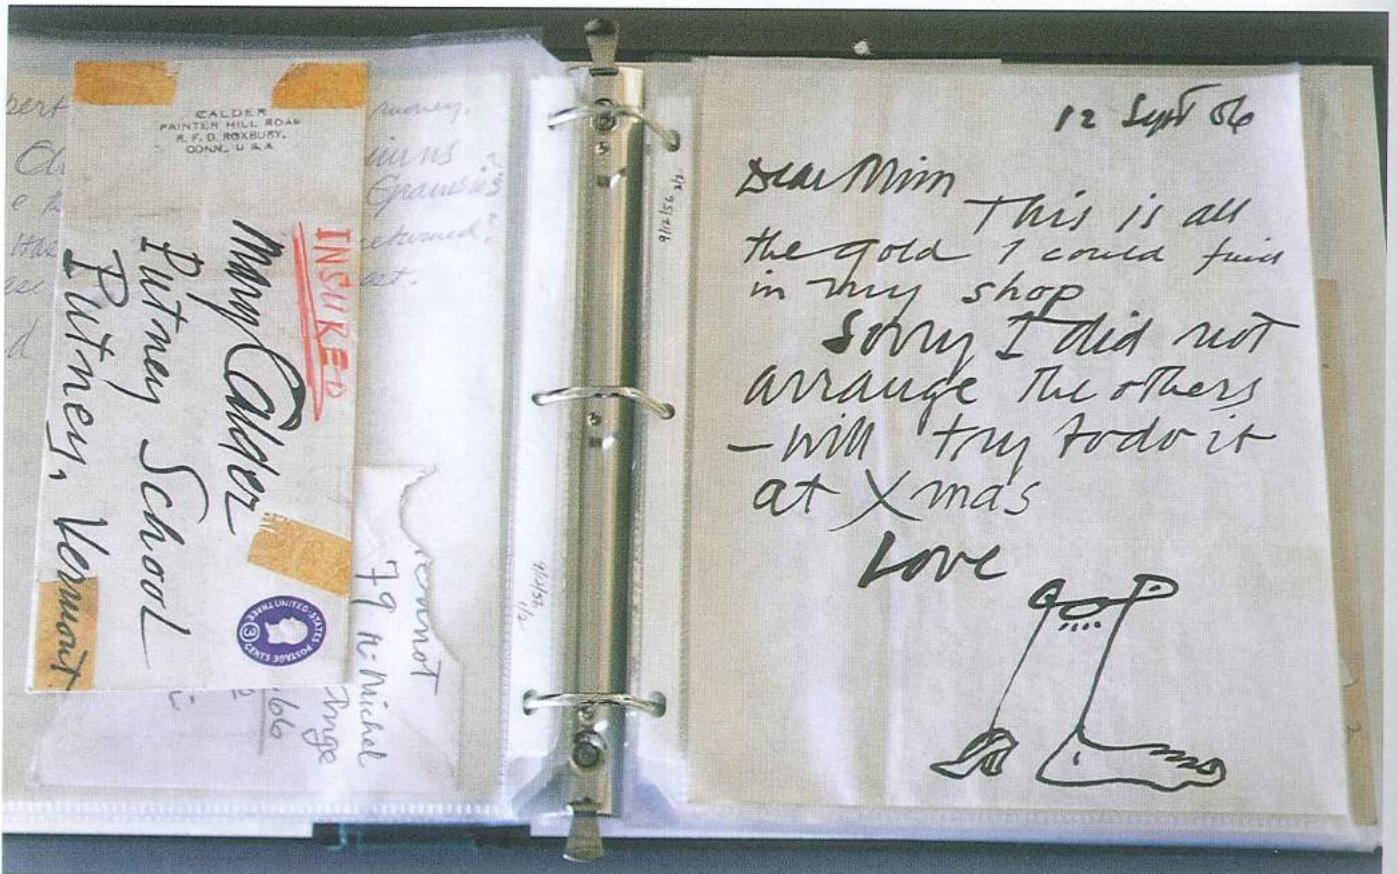 CALDER
PAINTER HILL ROAD
R. F. D. ROXBURY,
CONN., U S A
INSURED
Mary Calder
Putney School
Putney, Vermont
UNITED STATES POSTAGE THREE CENTS
3
money.
returned?
79 N. Michel
66
9/12/56 1/2
9/12/56 2/2
12 Sept 56
Dear Mim
This is all
the gold I could find
in my shop
Sorry I did not
arrange the others
– will try to do it
at Xmas
Love